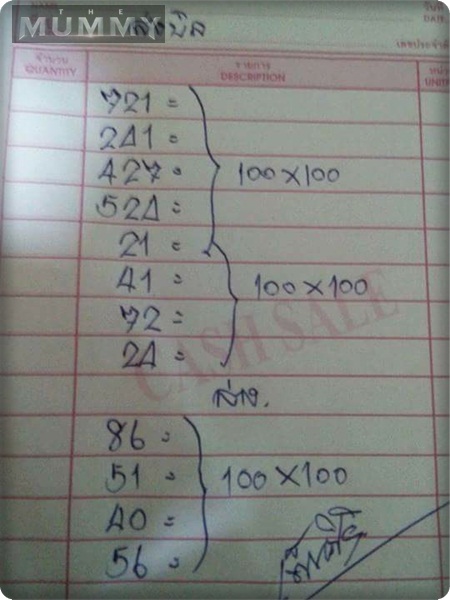 THE
MUMMY
ส่งบิล
วันที่
DATE
เลขประจำตั
จำนวน
QUANTITY
รายการ
DESCRIPTION
หน่ว
UNIT
721 =
241 =
427 =
524 =
100×100
21 =
41 =
72 =
24 =
100×100
CASH SALE
ล่าง.
86 =
51 =
40 =
56 =
100×100